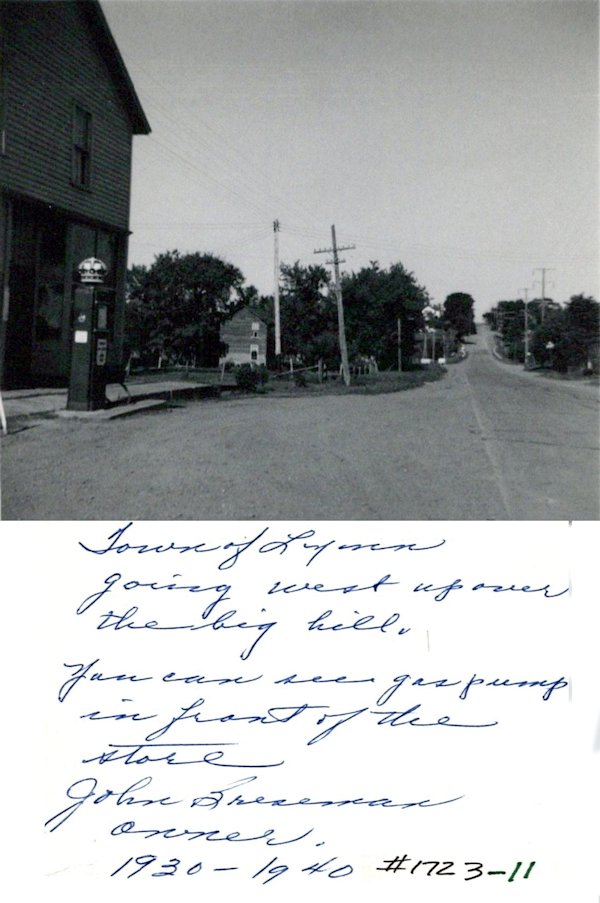 Town of Lynn
going west up over
the big hill.
You can see gas pump
in front of the
store
John Breseman
owner.
1930 - 1940 #1723-11